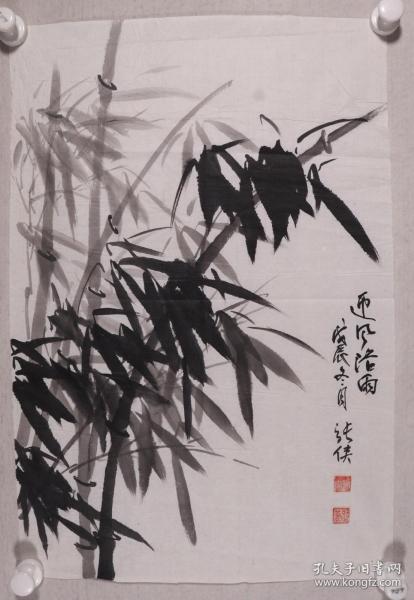 迎风沐雨
戊辰冬月 张侠
孔夫子旧书网
www.kongfz.com